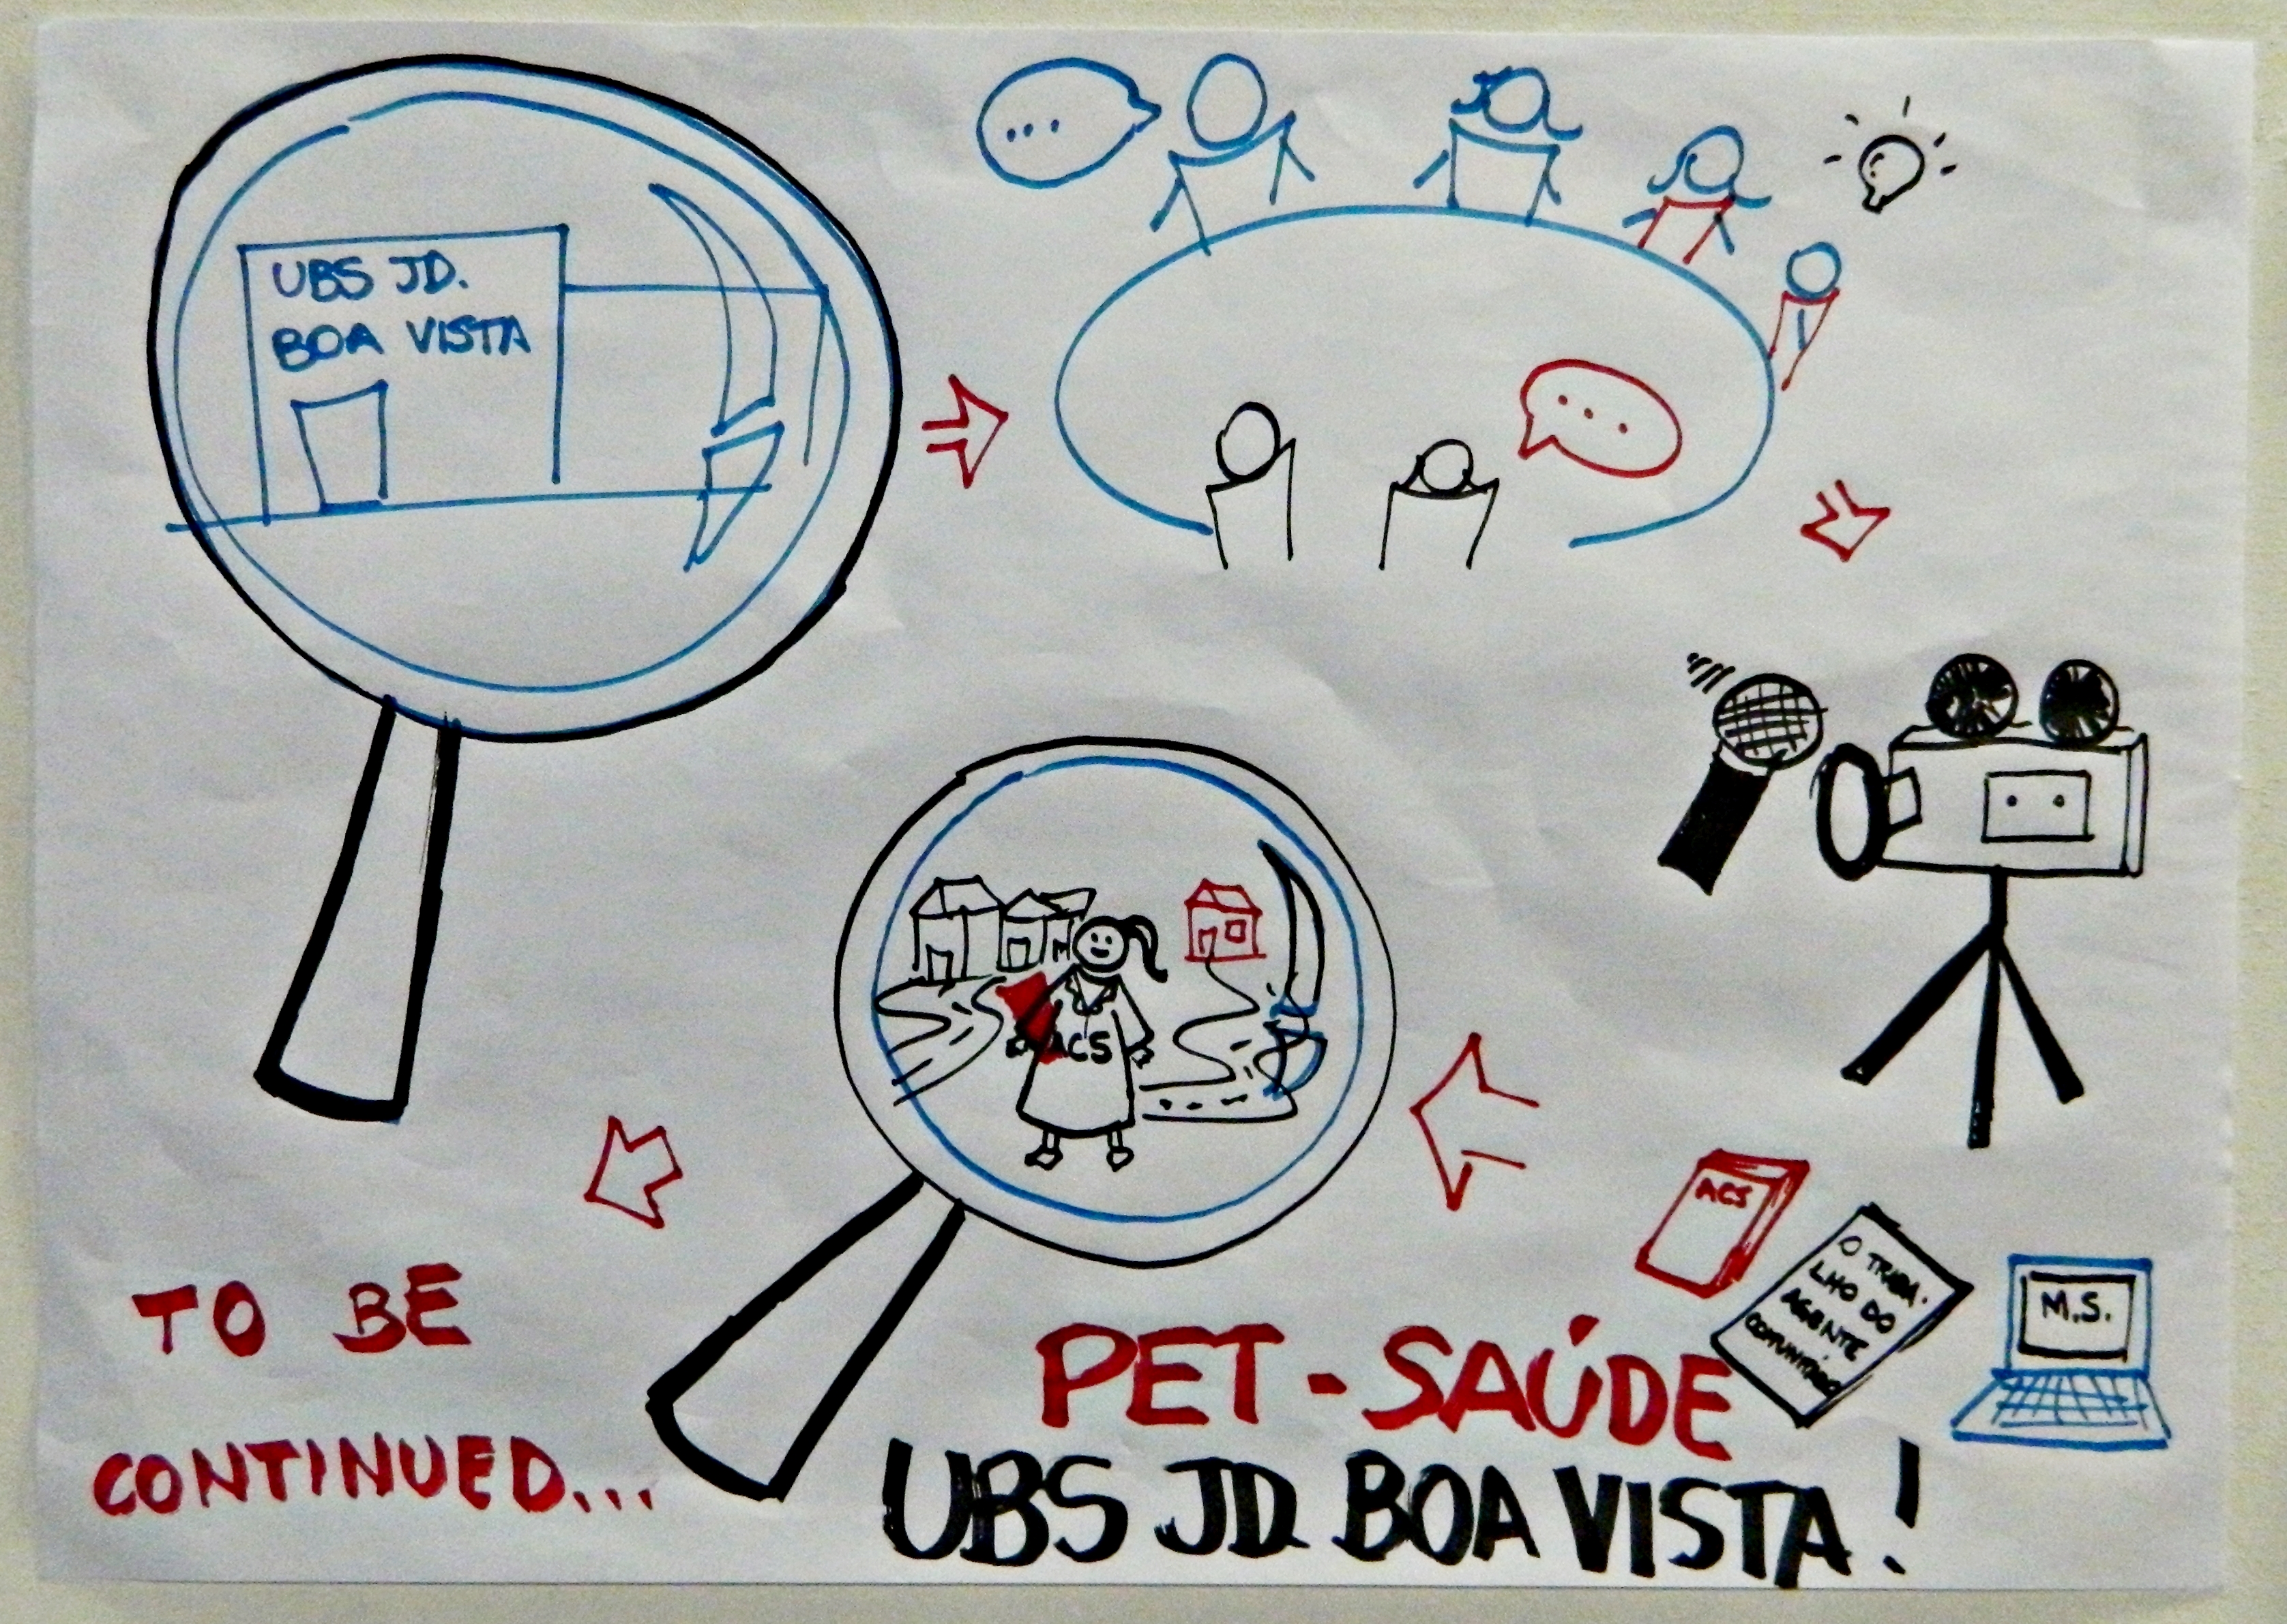 UBS JD.
BOA VISTA
ACS
ACS
O TRABA-
LHO DO
AGENTE
COMUNITÁRIO
M.S.
TO BE
CONTINUED...
PET-SAÚDE
UBS JD. BOA VISTA!